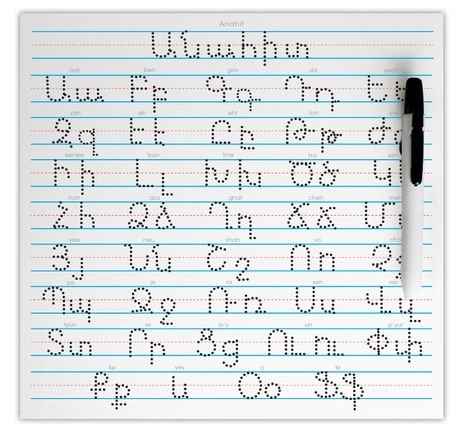 Anahit
Անահիտ
ayb ben gim da yech
Աա Բբ Գգ Դդ Եե
zah eh uht toh zhe
Զզ Էէ Ըը Թթ Ժ
eenee lyun khe tsa
Իի Լլ Խխ Ծծ Կ
hoh dza ghat cheh
Հհ Ձձ Ղղ Ճճ Մ
yee neu shah vo cha
Յյ Նն Շշ Ոո Չչ
pe je ra seh vev
Պպ Ջջ Ռռ Սս Վվ
tyun re ts'o un p'yur
Տտ Րր Ցց Ուու Փփ
ke yev o fe
Քք և Օօ Ֆֆ